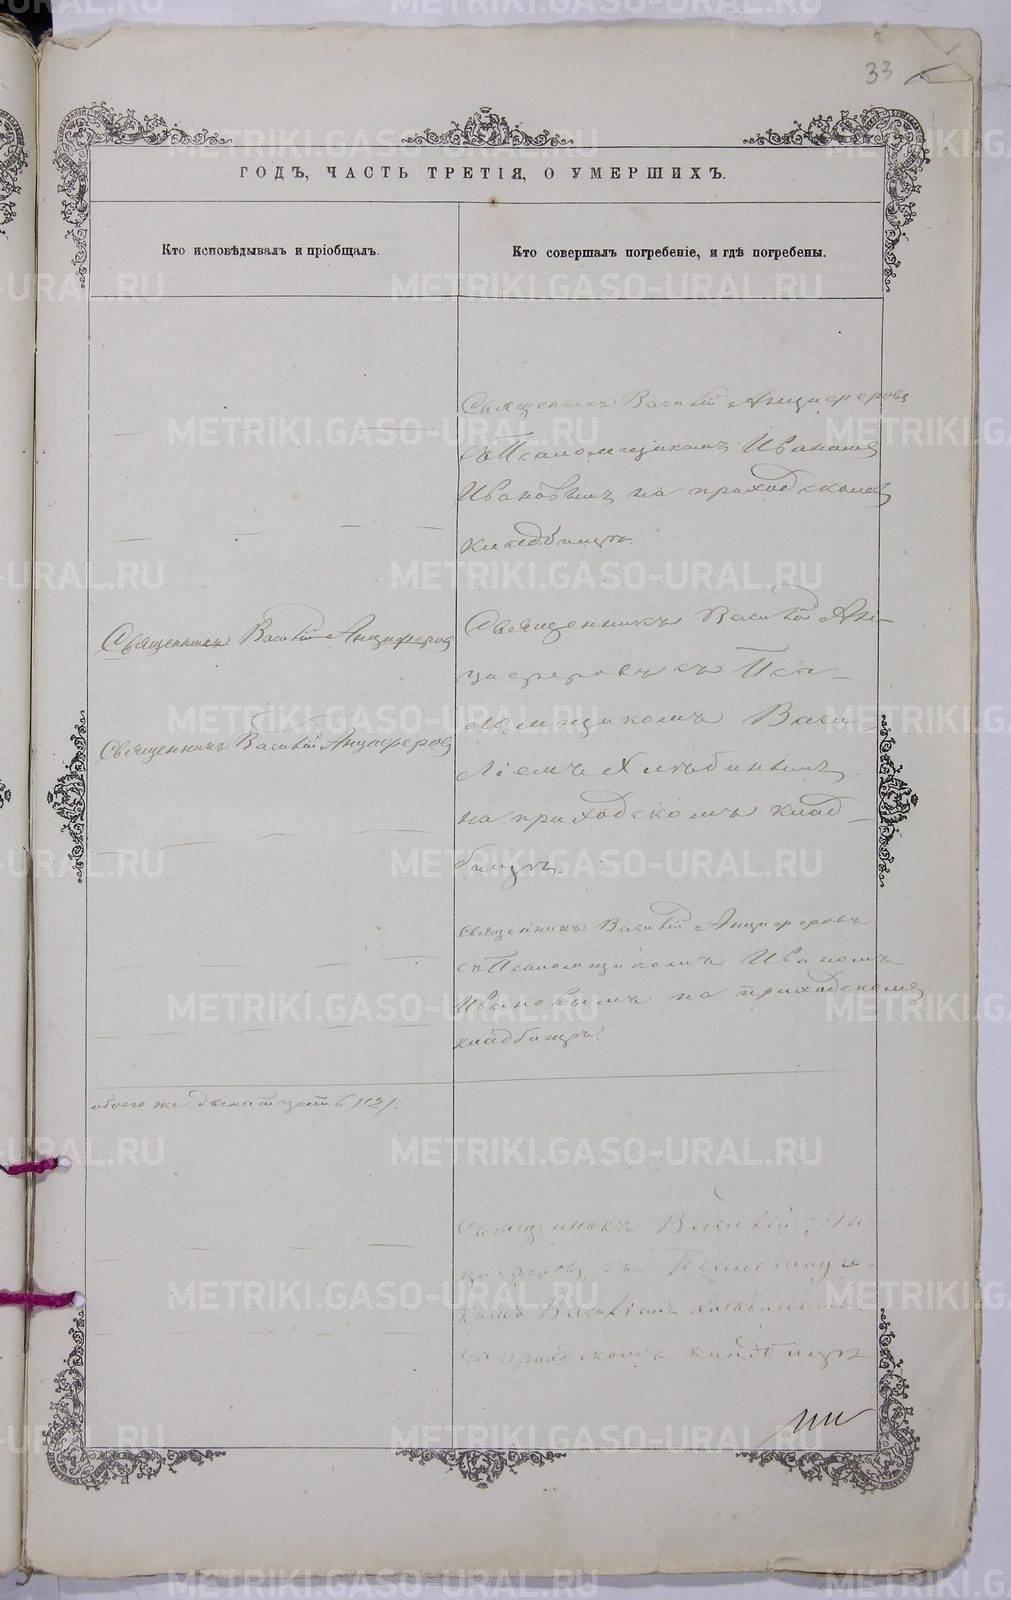 33
ГОДЪ, ЧАСТЬ ТРЕТІЯ, О УМЕРШИХЪ.
Кто исповѣдывалъ и пріобщалъ.
Кто совершалъ погребеніе, и гдѣ погребены.
Священникъ Василій Анциферовъ
съ Псаломщикомъ Иваномъ
Ивановымъ на приходскомъ
кладбищѣ
Священникъ Василій Анциферов
Священникъ Василій Анциферов
Священникъ Василій Ан-
циферовъ съ Пса-
ломщикомъ Васи-
ліемъ Хлѣбинымъ
на приходскомъ клад-
бищѣ.
Священникъ Василій Анциферовъ
съ Псаломщикомъ Иваномъ
Ивановымъ на приходскомъ
кладбищѣ.
обоего же двенатцать /12/.
Священникъ Василій Ан-
циферовъ съ Псаломщи-
комъ Василіемъ Хлѣбинымъ
на приходскомъ кладбищѣ
METRIKI.GASO-URAL.RU